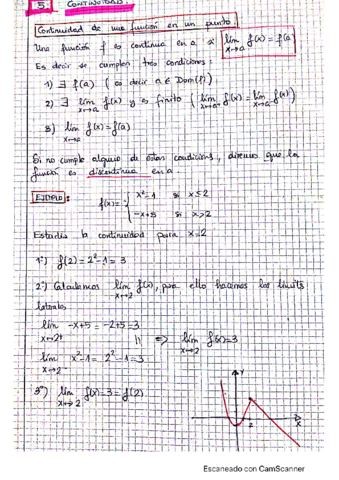 5. CONTINUIDAD
Continuidad de una función en un punto:
Una función f es continua en a si lím x→a f(x) = f(a)
Es decir se cumplen tres condiciones:
1) ∃ f(a) (es decir a ∈ Dom(f))
2) ∃ lím x→a f(x) y es finito (lím x→a⁺ f(x) = lím x→a⁻ f(x))
3) lím x→a f(x) = f(a)
Si no cumple alguna de estas condiciones, diremos que la
función es discontinua en a
EJEMPLO: f(x) = { x²-1 si x≤2
-x+5 si x>2
Estudia la continuidad para x=2
1º) f(2) = 2²-1 = 3
2º) Calculamos lím x→2 f(x), para ello hacemos los límites
laterales
lím x→2⁺ -x+5 = -2+5 = 3
|| ⇒ lím x→2 f(x) = 3
lím x→2⁻ x²-1 = 2²-1 = 3
3º) lím x→2 f(x) = 3 = f(2)
Y
2
X
Escaneado con CamScanner